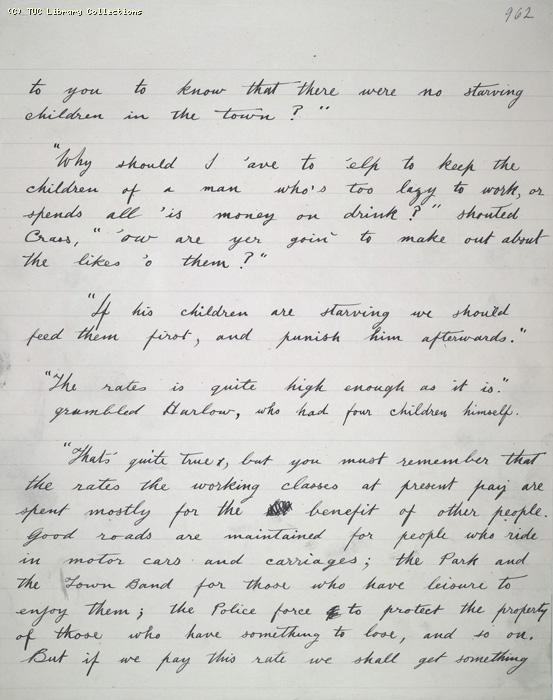 (C) TUC Library Collections
962
to you to know that there were no starving
children in the town?"
"Why should I 'ave to 'elp to keep the
children of a man who's too lazy to work, or
spends all 'is money on drink?" shouted
Crass, "'ow are yer goin' to make out about
the likes 'o them?"
"If his children are starving we should
feed them first, and punish him afterwards."
"The rates is quite high enough as it is."
grumbled Harlow, who had four children himself.
"Thats quite true, but you must remember that
the rates the working classes at present pay are
spent mostly for the benefit of other people.
Good roads are maintained for people who ride
in motor cars and carriages; the Park and
the Town Band for those who have leisure to
enjoy them; the Police force to protect the property
of those who have something to lose, and so on.
But if we pay this rate we shall get something